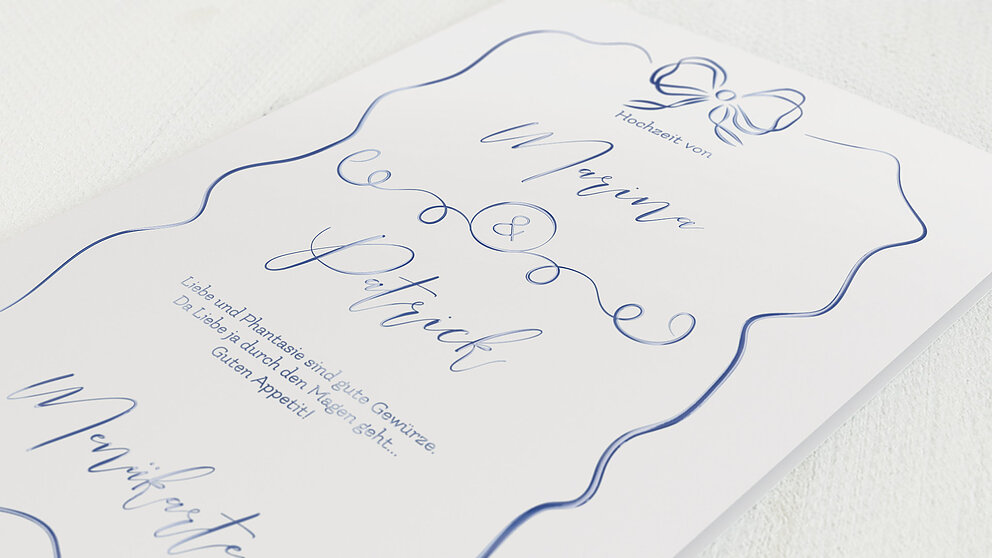 Hochzeit von
Marina
&
Patrick
Liebe und Phantasie sind gute Gewürze.
Da Liebe ja durch den Magen geht...
Guten Appetit!
Menükarte